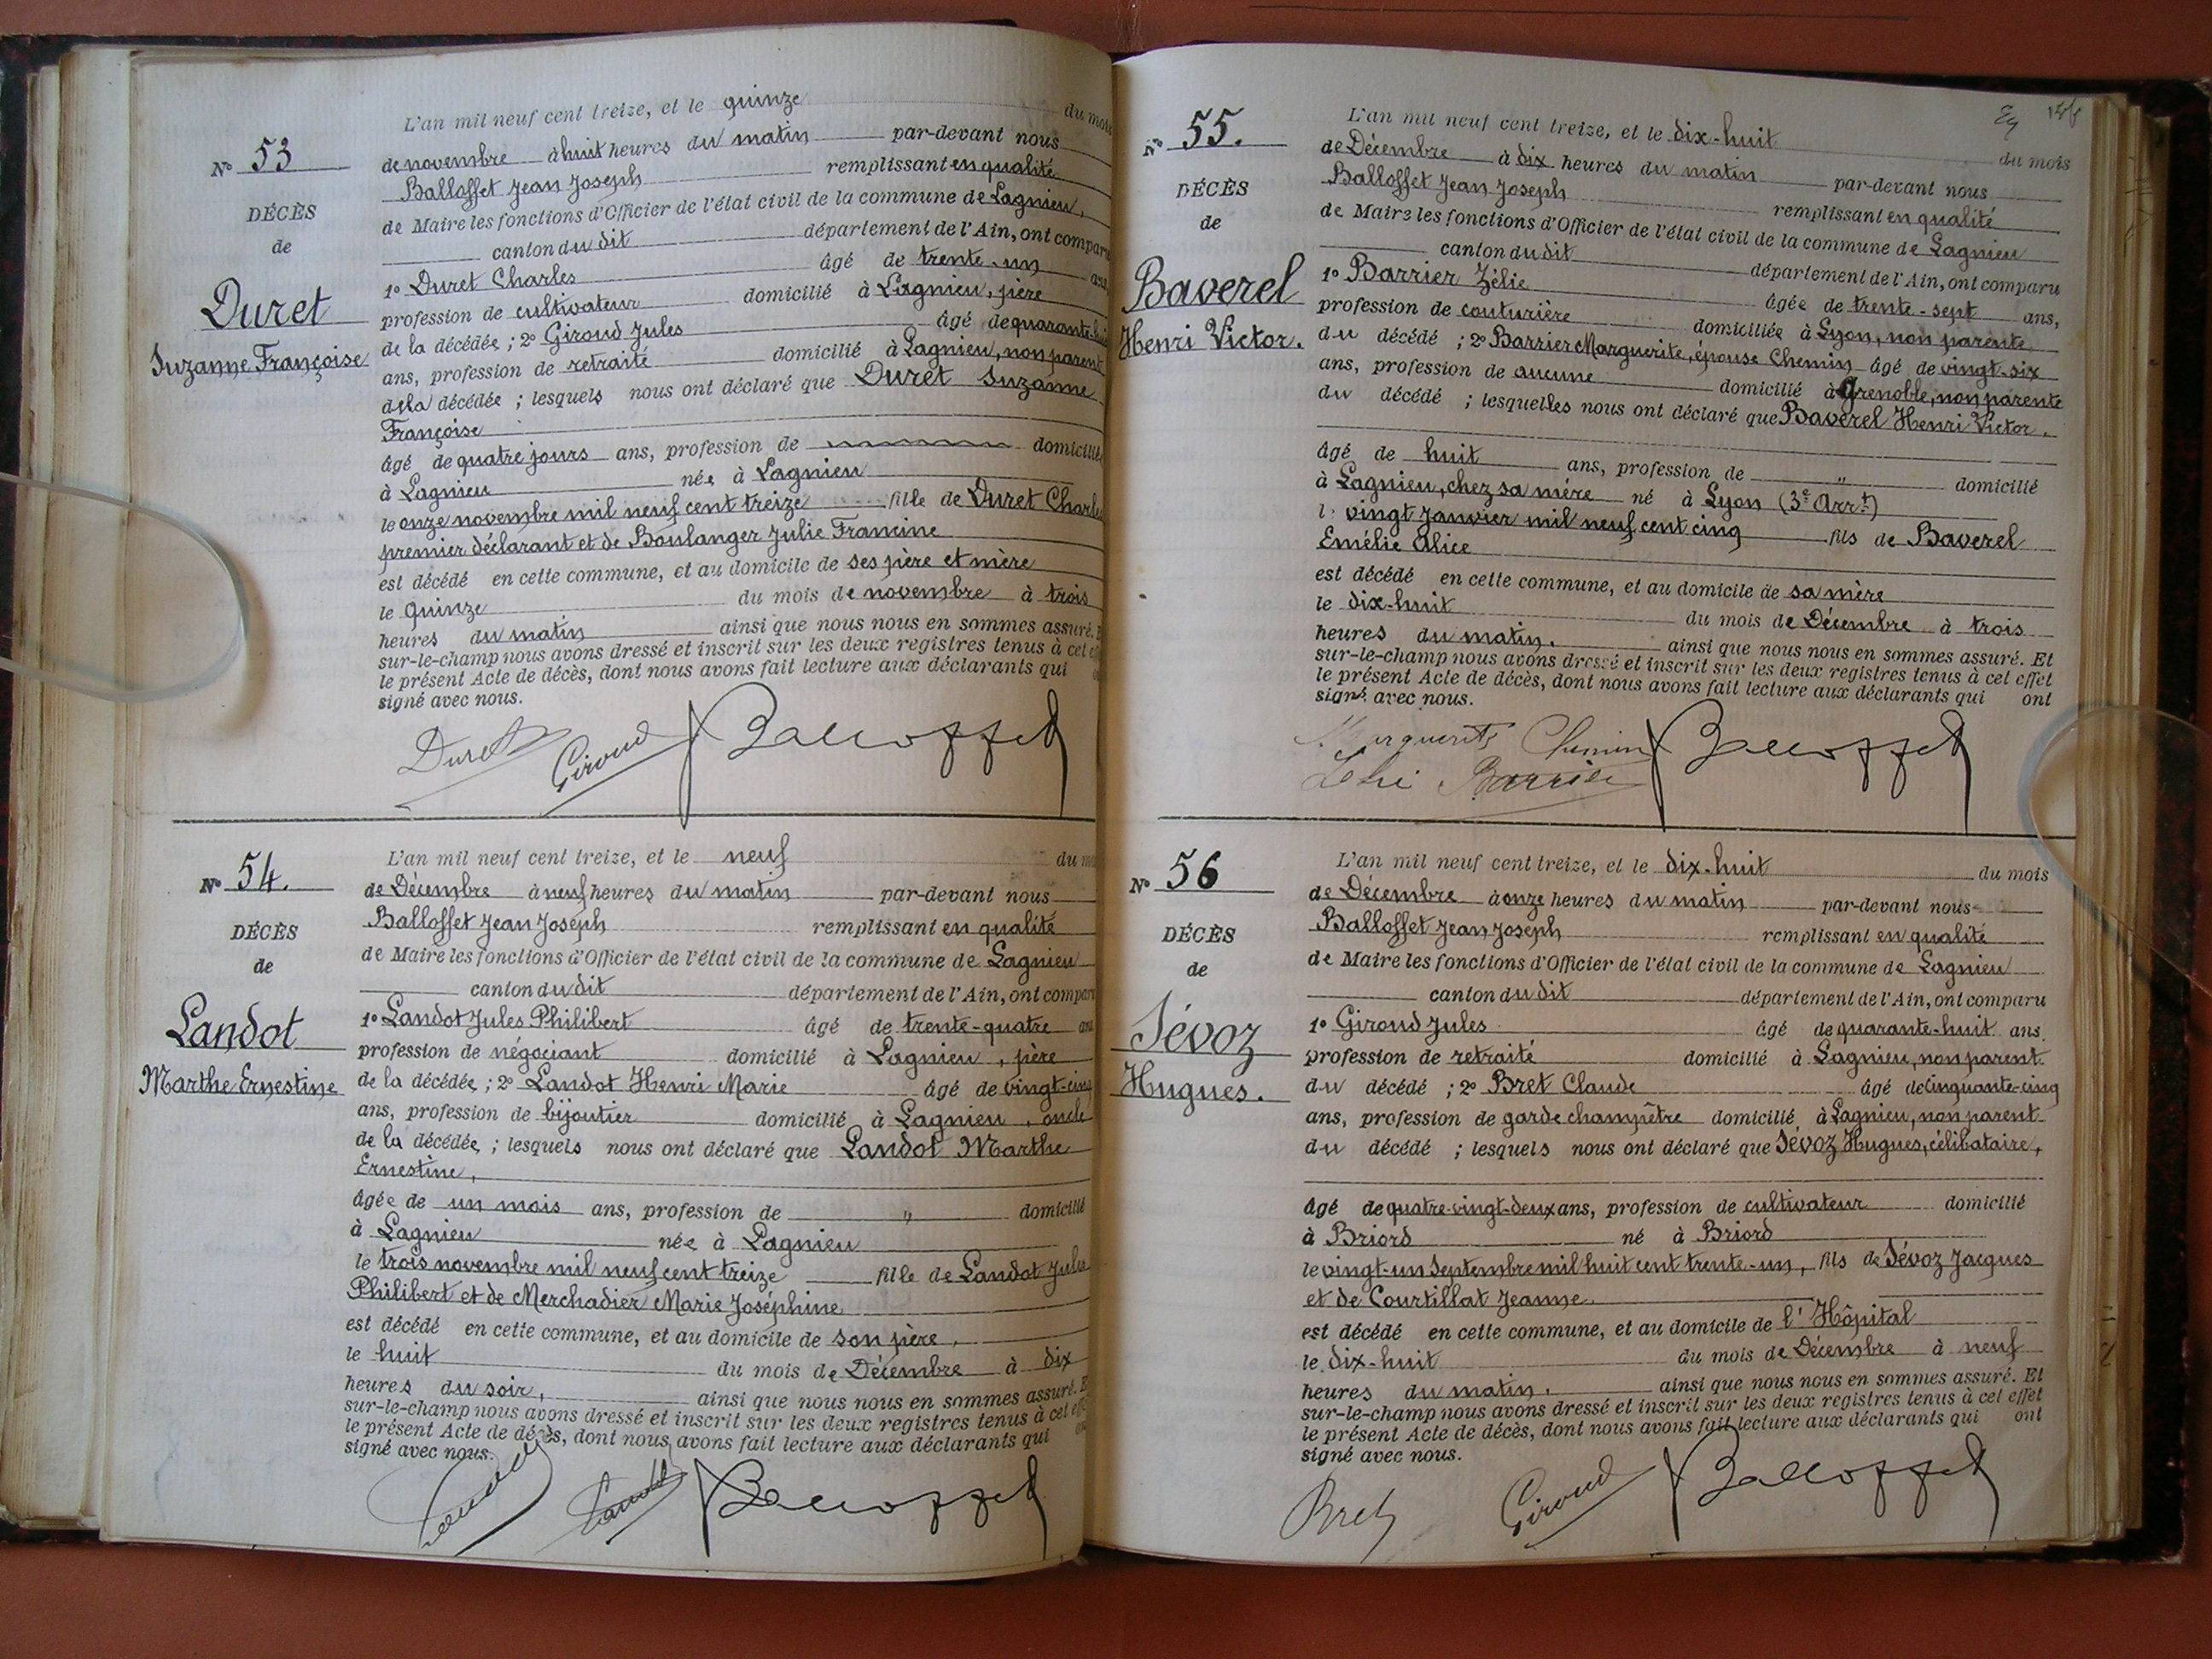 L'an mil neuf cent treize, et le quinze du mois
N° 53
de novembre à huit heures du matin par-devant nous
Balloffet Jean Joseph remplissant en qualité
DÉCÈS
de Maire les fonctions d'Officier de l'état civil de la commune de Lagnieu,
de
canton du dit département de l'Ain, ont comparu
1° Duret Charles âgé de trente-un ans
Duret
profession de cultivateur domicilié à Lagnieu, père
de la décédée ; 2° Giroud Jules âgé de quarante-huit
Suzanne Françoise
ans, profession de retraité domicilié à Lagnieu, non parent
de la décédée ; lesquels nous ont déclaré que Duret Suzanne
Françoise
âgé de quatre jours ans, profession de domicilié
à Lagnieu née à Lagnieu
le onze novembre mil neuf cent treize fille de Duret Charles
premier déclarant et de Boulanger Julie Francine
est décédé en cette commune, et au domicile de ses père et mère
le quinze du mois de novembre à trois
heures du matin ainsi que nous nous en sommes assuré. E
sur-le-champ nous avons dressé et inscrit sur les deux registres tenus à cet
le présent Acte de décès, dont nous avons fait lecture aux déclarants qui
signé avec nous.
Duret Giroud Balloffet
L'an mil neuf cent treize, et le neuf du
N° 54.
de Décembre à neuf heures du matin par-devant nous
Balloffet Jean Joseph remplissant en qualité
DÉCÈS
de Maire les fonctions d'Officier de l'état civil de la commune de Lagnieu
de
canton du dit département de l'Ain, ont comparu
1° Landot Jules Philibert âgé de trente-quatre ans
Landot
profession de négociant domicilié à Lagnieu, père
Marthe Ernestine
de la décédée ; 2° Landot Henri Marie âgé de vingt-cinq
ans, profession de bijoutier domicilié à Lagnieu, oncle
de la décédée ; lesquels nous ont déclaré que Landot Marthe
Ernestine,
âgée de un mois ans, profession de " domicilié
à Lagnieu née à Lagnieu
le trois novembre mil neuf cent treize fille de Landot Jules
Philibert et de Merchadier Marie Joséphine
est décédé en cette commune, et au domicile de son père,
le huit du mois de Décembre à dix
heures du soir, ainsi que nous nous en sommes assuré. E
sur-le-champ nous avons dressé et inscrit sur les deux registres tenus à cet effet
le présent Acte de décès, dont nous avons fait lecture aux déclarants qui
signé avec nous.
Landot Balloffet
L'an mil neuf cent treize, et le dix-huit du mois
N° 55.
de Décembre à dix heures du matin par-devant nous
Balloffet Jean Joseph remplissant en qualité
DÉCÈS
de Maire les fonctions d'Officier de l'état civil de la commune de Lagnieu
de
canton du dit département de l'Ain, ont comparu
1° Barrier Zélie âgée de trente-sept ans,
Baverel
profession de couturière domiciliée à Lyon, non parente
Henri Victor.
du décédé ; 2° Barrier Marguerite, épouse Chemin âgé de vingt-six
ans, profession de aucune domicilié à Grenoble, non parente
du décédé ; lesquelles nous ont déclaré que Baverel Henri Victor.
âgé de huit ans, profession de " domicilié
à Lagnieu, chez sa mère né à Lyon (3e Arrt)
le vingt Janvier mil neuf cent cinq fils de Baverel
Emélie Alice
est décédé en cette commune, et au domicile de sa mère
le dix-huit du mois de Décembre à trois
heures du matin. ainsi que nous nous en sommes assuré. Et
sur-le-champ nous avons dressé et inscrit sur les deux registres tenus à cet effet
le présent Acte de décès, dont nous avons fait lecture aux déclarants qui ont
signé avec nous.
Marguerite Chemin Balloffet
Zélie Barrier
L'an mil neuf cent treize, et le dix-huit du mois
N° 56
de Décembre à onze heures du matin par-devant nous
Balloffet Jean Joseph remplissant en qualité
DÉCÈS
de Maire les fonctions d'Officier de l'état civil de la commune de Lagnieu
de
canton du dit département de l'Ain, ont comparu
1° Giroud Jules âgé de quarante-huit ans
Sévoz
profession de retraité domicilié à Lagnieu, non parent
Hugues.
du décédé ; 2° Bret Claude âgé de cinquante-cinq
ans, profession de garde champêtre domicilié à Lagnieu, non parent
du décédé ; lesquels nous ont déclaré que Sévoz Hugues, célibataire,
âgé de quatre-vingt-deux ans, profession de cultivateur domicilié
à Briord né à Briord
le vingt-un Septembre mil huit cent trente-un, fils de Sévoz Jacques
et de Courtillat Jeanne.
est décédé en cette commune, et au domicile de l'Hôpital
le dix-huit du mois de Décembre à neuf
heures du matin. ainsi que nous nous en sommes assuré. Et
sur-le-champ nous avons dressé et inscrit sur les deux registres tenus à cet effet
le présent Acte de décès, dont nous avons fait lecture aux déclarants qui ont
signé avec nous.
Bret Giroud Balloffet